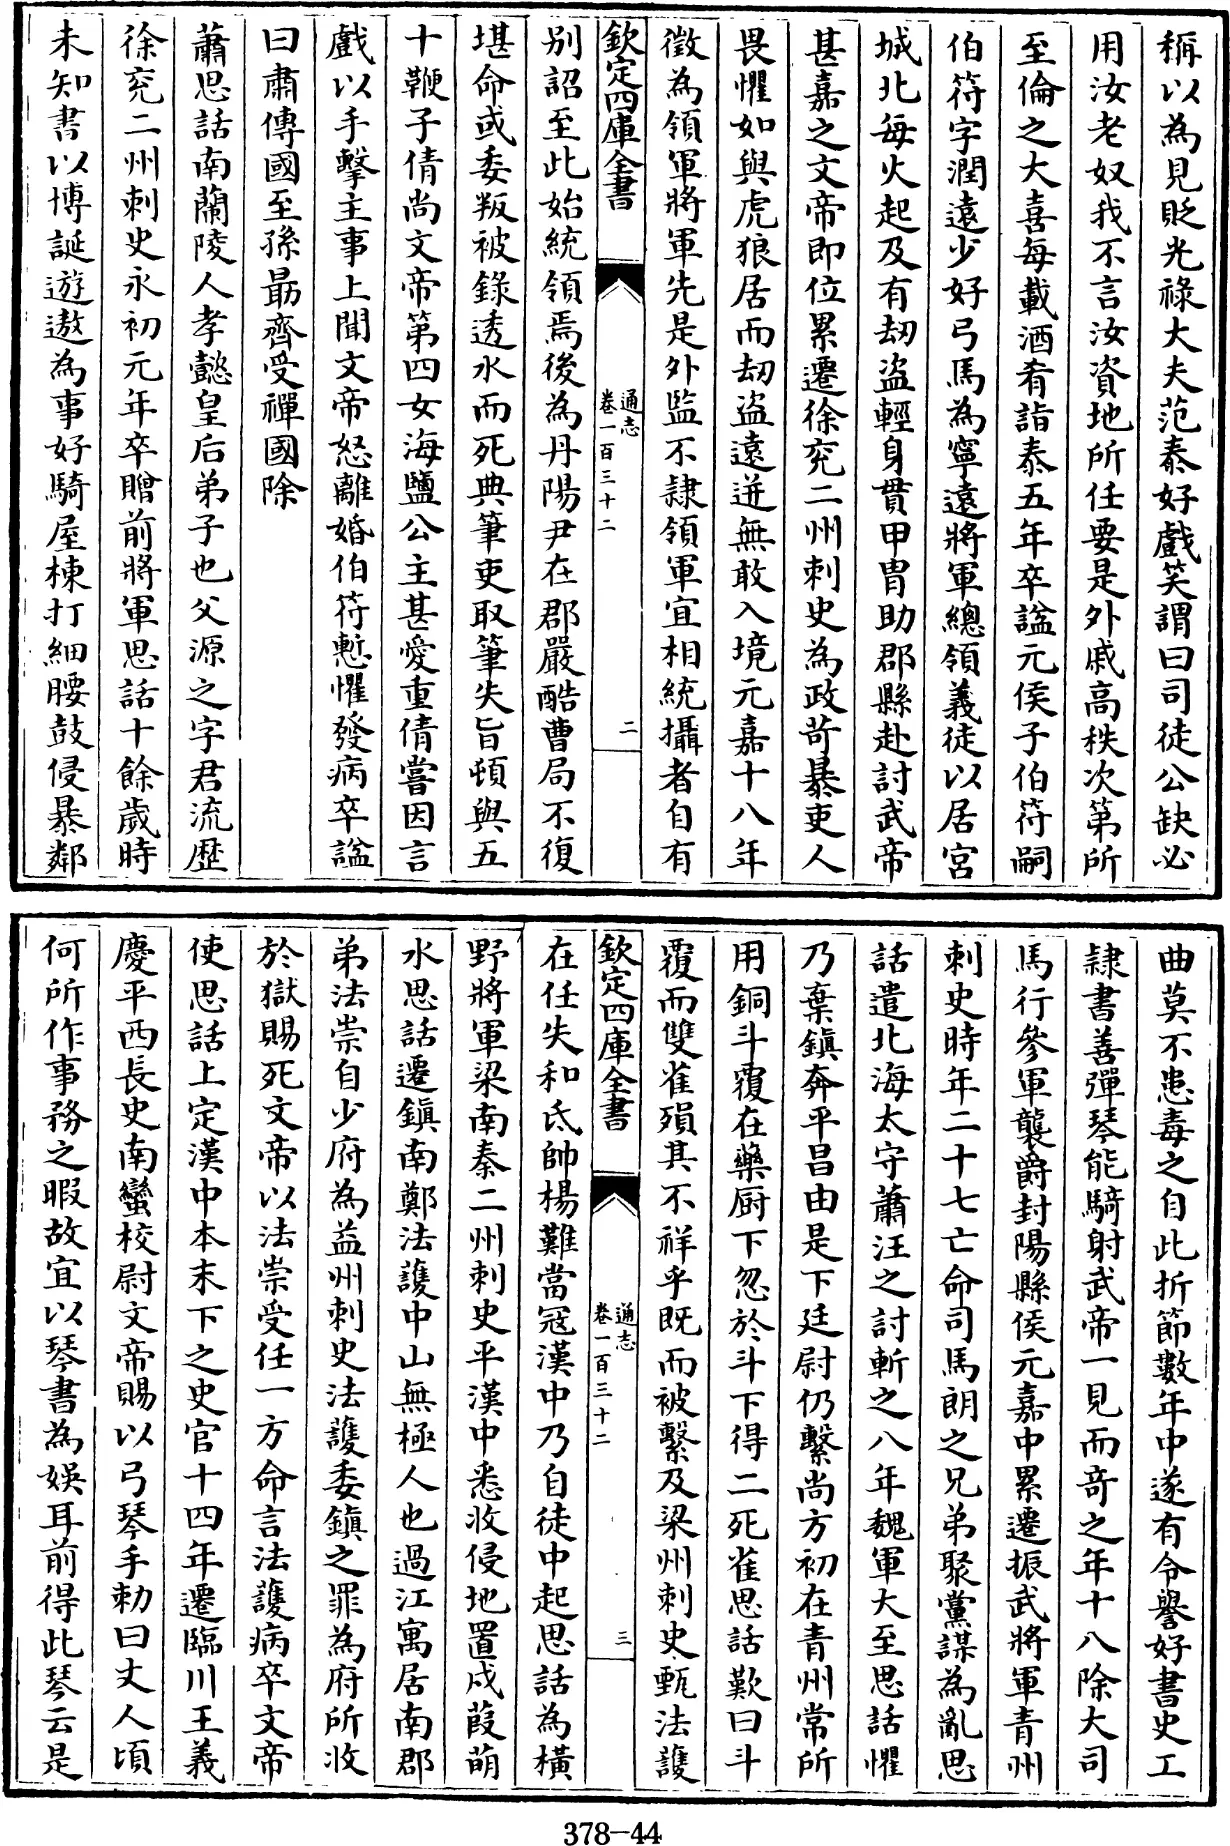 稱以為見貶光祿大夫范泰好戲笑謂曰司徒公缺必
用汝老奴我不言汝資地所任要是外戚高秩次第所
至倫之大喜每載酒肴詣泰五年卒諡元侯子伯符嗣
伯符字潤遠少好弓馬為寧遠將軍總領義徒以居宮
城北每火起及有刼盜輕身貫甲胄助郡縣赴討武帝
甚嘉之文帝即位累遷徐兖二州刺史為政苛暴吏人
畏懼如與虎狼居而刼盜遠迸無敢入境元嘉十八年
徵為領軍將軍先是外監不隷領軍宜相統攝者自有
欽定四庫全書
通志
卷一百三十二
二
别詔至此始統領焉後為丹陽尹在郡嚴酷曹局不復
堪命或委叛被錄透水而死典筆吏取筆失旨頓與五
十鞭子倩尚文帝第四女海鹽公主甚愛重倩嘗因言
戲以手擊主事上聞文帝怒離婚伯符慙懼發病卒諡
曰肅傳國至孫勗齊受禪國除
蕭思話南蘭陵人孝懿皇后弟子也父源之字君流歷
徐兖二州刺史永初元年卒贈前將軍思話十餘歲時
未知書以博誕遊遨為事好騎屋棟打細腰鼓侵暴鄰
曲莫不患毒之自此折節數年中遂有令譽好書史工
隷書善彈琴能騎射武帝一見而竒之年十八除大司
馬行參軍襲爵封陽縣侯元嘉中累遷振武將軍青州
刺史時年二十七亡命司馬朗之兄弟聚黨謀為亂思
話遣北海太守蕭汪之討斬之八年魏軍大至思話懼
乃棄鎮奔平昌由是下廷尉仍繫尚方初在青州常所
用銅斗覆在藥厨下忽於斗下得二死雀思話歎曰斗
覆而雙雀殞其不祥乎既而被繫及梁州刺史甄法護
欽定四庫全書
通志
卷一百三十二
三
在任失和氐帥楊難當冦漢中乃自徒中起思話為横
野將軍梁南秦二州刺史平漢中悉收侵地置戍葭萌
水思話遷鎮南鄭法護中山無極人也過江寓居南郡
弟法崇自少府為益州刺史法護委鎮之罪為府所收
於獄賜死文帝以法崇受任一方命言法護病卒文帝
使思話上定漢中本末下之史官十四年遷臨川王義
慶平西長史南蠻校尉文帝賜以弓琴手勑曰丈人頃
何所作事務之暇故宜以琴書為娛耳前得此琴云是
378-44